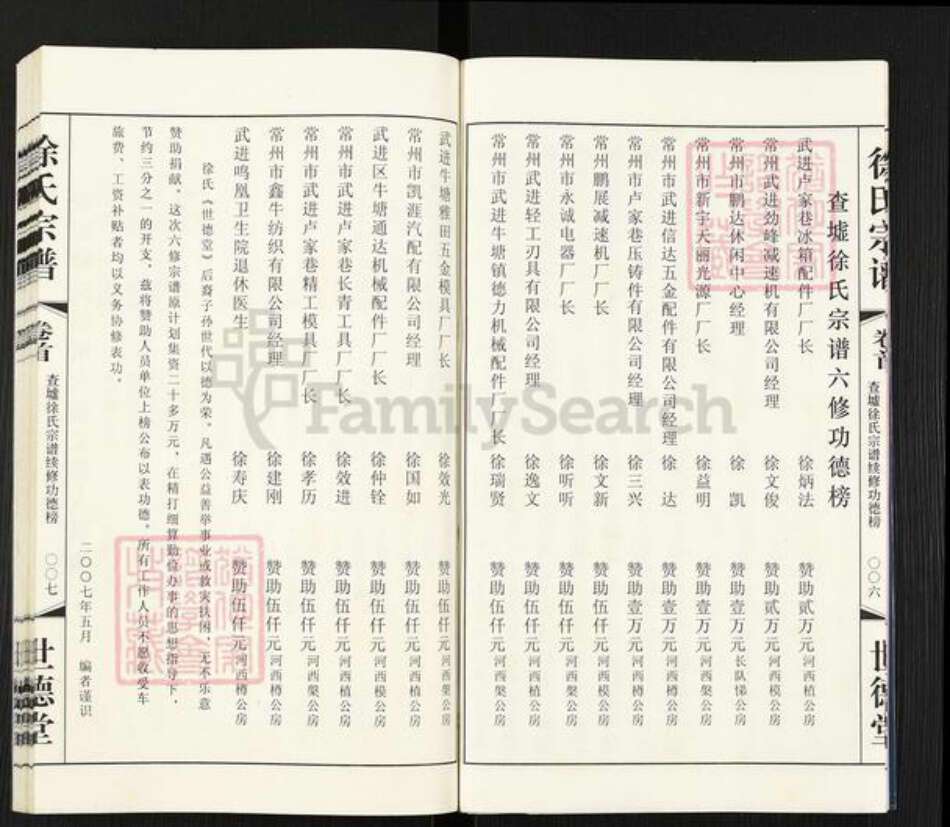 徐氏宗谱
卷首
查墟徐氏宗谱续修功德榜
〇〇六
世德堂
查墟徐氏宗谱六修功德榜
武进卢家巷冰箱配件厂厂长 徐炳法 赞助贰万元 河西植公房
常州武进劲峰减速机有限公司经理 徐文俊 赞助贰万元 河西模公房
常州市鹏达休闲中心经理 徐凯 赞助壹万元 长队悌公房
常州市新宇天丽光源厂厂长 徐益明 赞助壹万元 河西模公房
常州市武进信达五金配件有限公司经理 徐达 赞助壹万元 河西樽公房
常州市卢家巷压铸件有限公司经理 徐三兴 赞助壹万元 河西植公房
常州鹏展减速机厂厂长 徐文新 赞助伍仟元 河西模公房
常州市永诚电器厂厂长 徐听听 赞助伍仟元 河西槼公房
常州武进轻工刃具有限公司经理 徐逸文 赞助伍仟元 河西植公房
常州市武进牛塘镇德力机械配件厂厂长 徐瑞贤 赞助伍仟元 河西槼公房
武进牛塘雅田五金模具厂厂长 徐效光 赞助伍仟元 河西槼公房
常州市凯涯汽配有限公司经理 徐国如 赞助伍仟元 河西植公房
武进区牛塘通达机械配件厂厂长 徐仲铨 赞助伍仟元 河西模公房
常州市武进卢家巷长青工具厂厂长 徐效进 赞助伍仟元 河西植公房
常州市武进卢家巷精工模具厂厂长 徐孝历 赞助伍仟元 河西槼公房
常州市鑫牛纺织有限公司经理 徐建刚 赞助伍仟元 河西樽公房
武进鸣凰卫生院退休医生 徐寿庆 赞助伍仟元 河西樽公房
徐氏《世德堂》后裔子孙世代以德为荣。凡遇公益善举事业或救灾扶困，无不乐意
赞助捐献。这次六修宗谱原计划集资二十多万元，在精打细算勤俭办事的思想指导下，
节约三分之一的开支。兹将赞助人员单位上榜公布以表功德。所有工作人员不愿收受车
旅费、工资补贴者均以义务协修表功。
二〇〇七年五月 编者谨识
徐氏宗谱
卷首
查墟徐氏宗谱续修功德榜
〇〇七
世德堂
FamilySearch